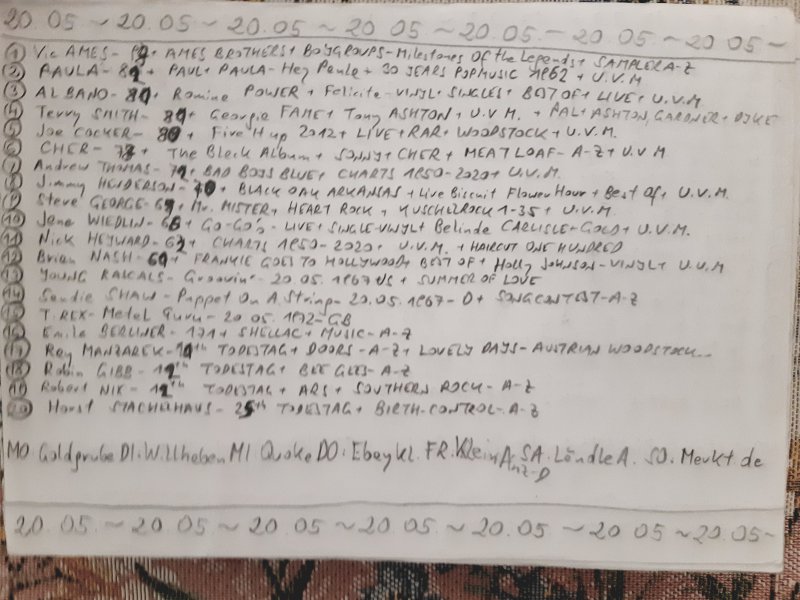 20.05 ~ 20.05 ~ 20.05 ~ 20 05 ~ 20.05. ~ 20 05 ~ 20 05 ~
1 Vic AMES - + AMES BROTHERS + BOYGROUPS - Milestones Of the Legends + SAMPLER A-Z
2 PAULA - + PAUL + PAULA - Hey Paula + 30 YEARS POPMUSIC 1962 + U.V.M
3 AL BANO - + Romina POWER + Felicita - VINYL + SINGLES + BEST OF + LIVE + U.V.M.
4 Terry SMITH - + Georgie FAME + Tony ASHTON + U.V.M. + PAL + ASHTON, GARDNER + DYKE
5 Joe COCKER - + Fire It up 2012 + LIVE + RAR + WOODSTOCK + U.V.M.
6 CHER - + The Black Album + SONNY + CHER + MEAT LOAF - A-Z + U.V.M
7 Andrew THOMAS - + BAD BOYS BLUE + CHARTS 1950-2020 + U.V.M.
8 Jimmy HENDERSON - + BLACK OAK ARKANSAS + Live Biscuit Flower Hour + Best Of + U.V.M.
9 Steve GEORGE - + Mr. MISTER + HEART ROCK + KUSCHELROCK 1-35 + U.V.M.
10 Jane WIEDLIN - + GO-GO's - LIVE + SINGLE - VINYL + Belinda CARLISLE + GOLD + U.V.M.
11 Nick HEYWARD - + CHARTS 1950-2020 + U.V.M. + HAIRCUT ONE HUNDRED
12 Brian NASH - + FRANKIE GOES TO HOLLYWOOD + BEST OF + Holly JOHNSON - VINYL + U.V.M
13 YOUNG RASCALS - Groovin' - 20.05.1967 US + SUMMER OF LOVE
14 Sandie SHAW - Puppet On A String - 20.05.1967 - D + SONGCONTEST - A-Z
15 T.REX - Metal Guru - 20 05 1972 - GB
16 Emile BERLINER - 171 + SHELLAC + MUSIC - A-Z
17 Ray MANZAREK - TODESTAG + DOORS - A-Z + LOVELY DAYS - AUSTRIAN WOODSTOCK...
18 Robin GIBB - TODESTAG + BEE GEES - A-Z
19 Robert NIX - TODESTAG + ARS + SOUTHERN ROCK - A-Z
20 Horst STACHELHAUS - TODESTAG + BIRTH-CONTROL - A-Z
MO Goldgrube DI. Willhaben MI Quoka DO. Ebaykl. FR. KleinAnz-D SA. LändleA. SO. Markt de
20 05. ~ 20.05 ~ 20 05 ~ 20 05 ~ 20.05 ~ 20.05 ~ 20.05 ~